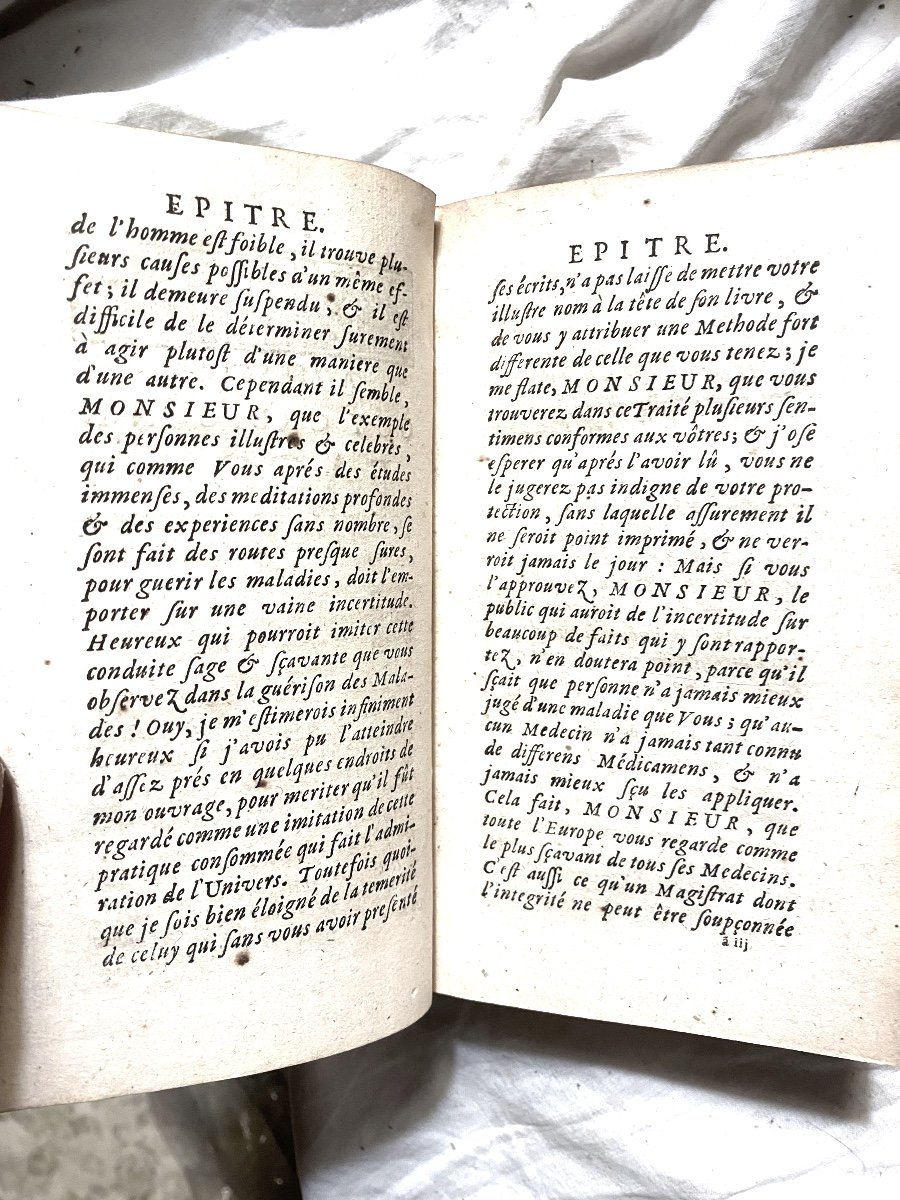 EPITRE.
de l'homme eſt foible, il trouve plu-
ſieurs cauſes poſſibles d'un même ef-
fet; il demeure ſuſpendu, & il eſt
difficile de le déterminer ſurement
à agir plutoſt d'une maniere que
d'une autre. Cependant il ſemble,
MONSIEUR, que l'exemple
des perſonnes illuſtres & celebres,
qui comme Vous aprés des études
immenſes, des meditations profondes
& des experiences ſans nombre, ſe
ſont fait des routes preſque ſures,
pour guerir les maladies, doit l'em-
porter ſur une vaine incertitude.
Heureux qui pourroit imiter cette
conduite ſage & ſçavante que vous
obſervez dans la guériſon des Mala-
des! Ouy, je m'eſtimerois infiniment
heureux ſi j'avois pu l'atteindre
d'aſſez prés en quelques endroits de
mon ouvrage, pour meriter qu'il fût
regardé comme une imitation de cette
pratique conſommée qui fait l'admi-
ration de l'Univers. Toutefois quoi-
que je ſois bien éloigné de la temerité
de celuy qui ſans vous avoir preſenté
EPITRE.
ſes écrits, n'a pas laiſſe de mettre votre
illuſtre nom à la tête de ſon livre, &
de vous y attribuer une Methode fort
differente de celle que vous tenez; je
me flate, MONSIEUR, que vous
trouverez dans ce Traité pluſieurs ſen-
timens conformes aux vôtres; & j'oſe
eſperer qu'aprés l'avoir lû, vous ne
le jugerez pas indigne de votre pro-
tection, ſans laquelle aſſurement il
ne ſeroit point imprimé, & ne ver-
roit jamais le jour: Mais ſi vous
l'approuvez, MONSIEUR, le
public qui auroit de l'incertitude ſur
beaucoup de faits qui y ſont rappor-
tez, n'en doutera point, parce qu'il
ſçait que perſonne n'a jamais mieux
jugé d'une maladie que Vous; qu'au-
cun Medecin n'a jamais tant connu
de differens Médicamens, & n'a
jamais mieux ſçu les appliquer.
Cela fait, MONSIEUR, que
toute l'Europe vous regarde comme
le plus ſçavant de tous ſes Medecins.
C'eſt auſſi ce qu'un Magiſtrat dont
l'integrité ne peut être ſoupçonnée
ã iij